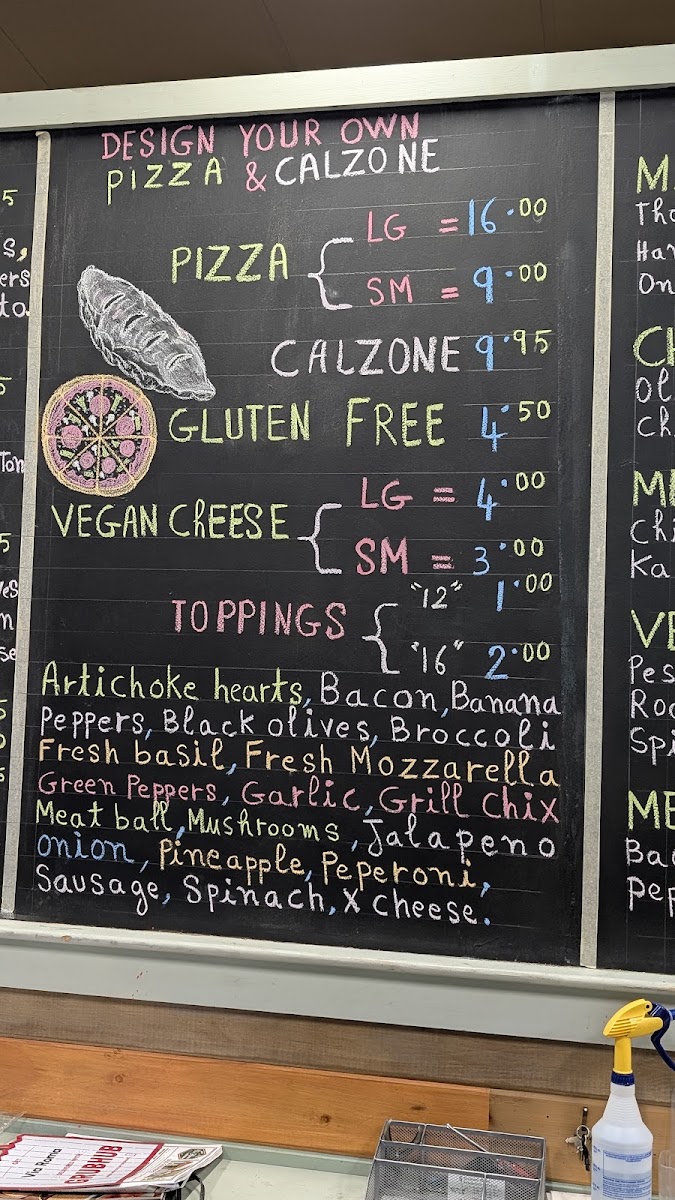 DESIGN YOUR OWN
PIZZA & CALZONE
PIZZA
LG = 16.00
SM = 9.00
CALZONE 9.95
GLUTEN FREE 4.50
VEGAN CHEESE
LG = 4.00
SM = 3.00
TOPPINGS
"12" 1.00
"16" 2.00
Artichoke hearts, Bacon, Banana
Peppers, Black olives, Broccoli
Fresh basil, Fresh Mozzarella
Green Peppers, Garlic, Grill Chix
Meat ball, Mushrooms, Jalapeno
onion, Pineapple, Peperoni,
Sausage, Spinach, X cheese.
Via Roma
GRUBHUB